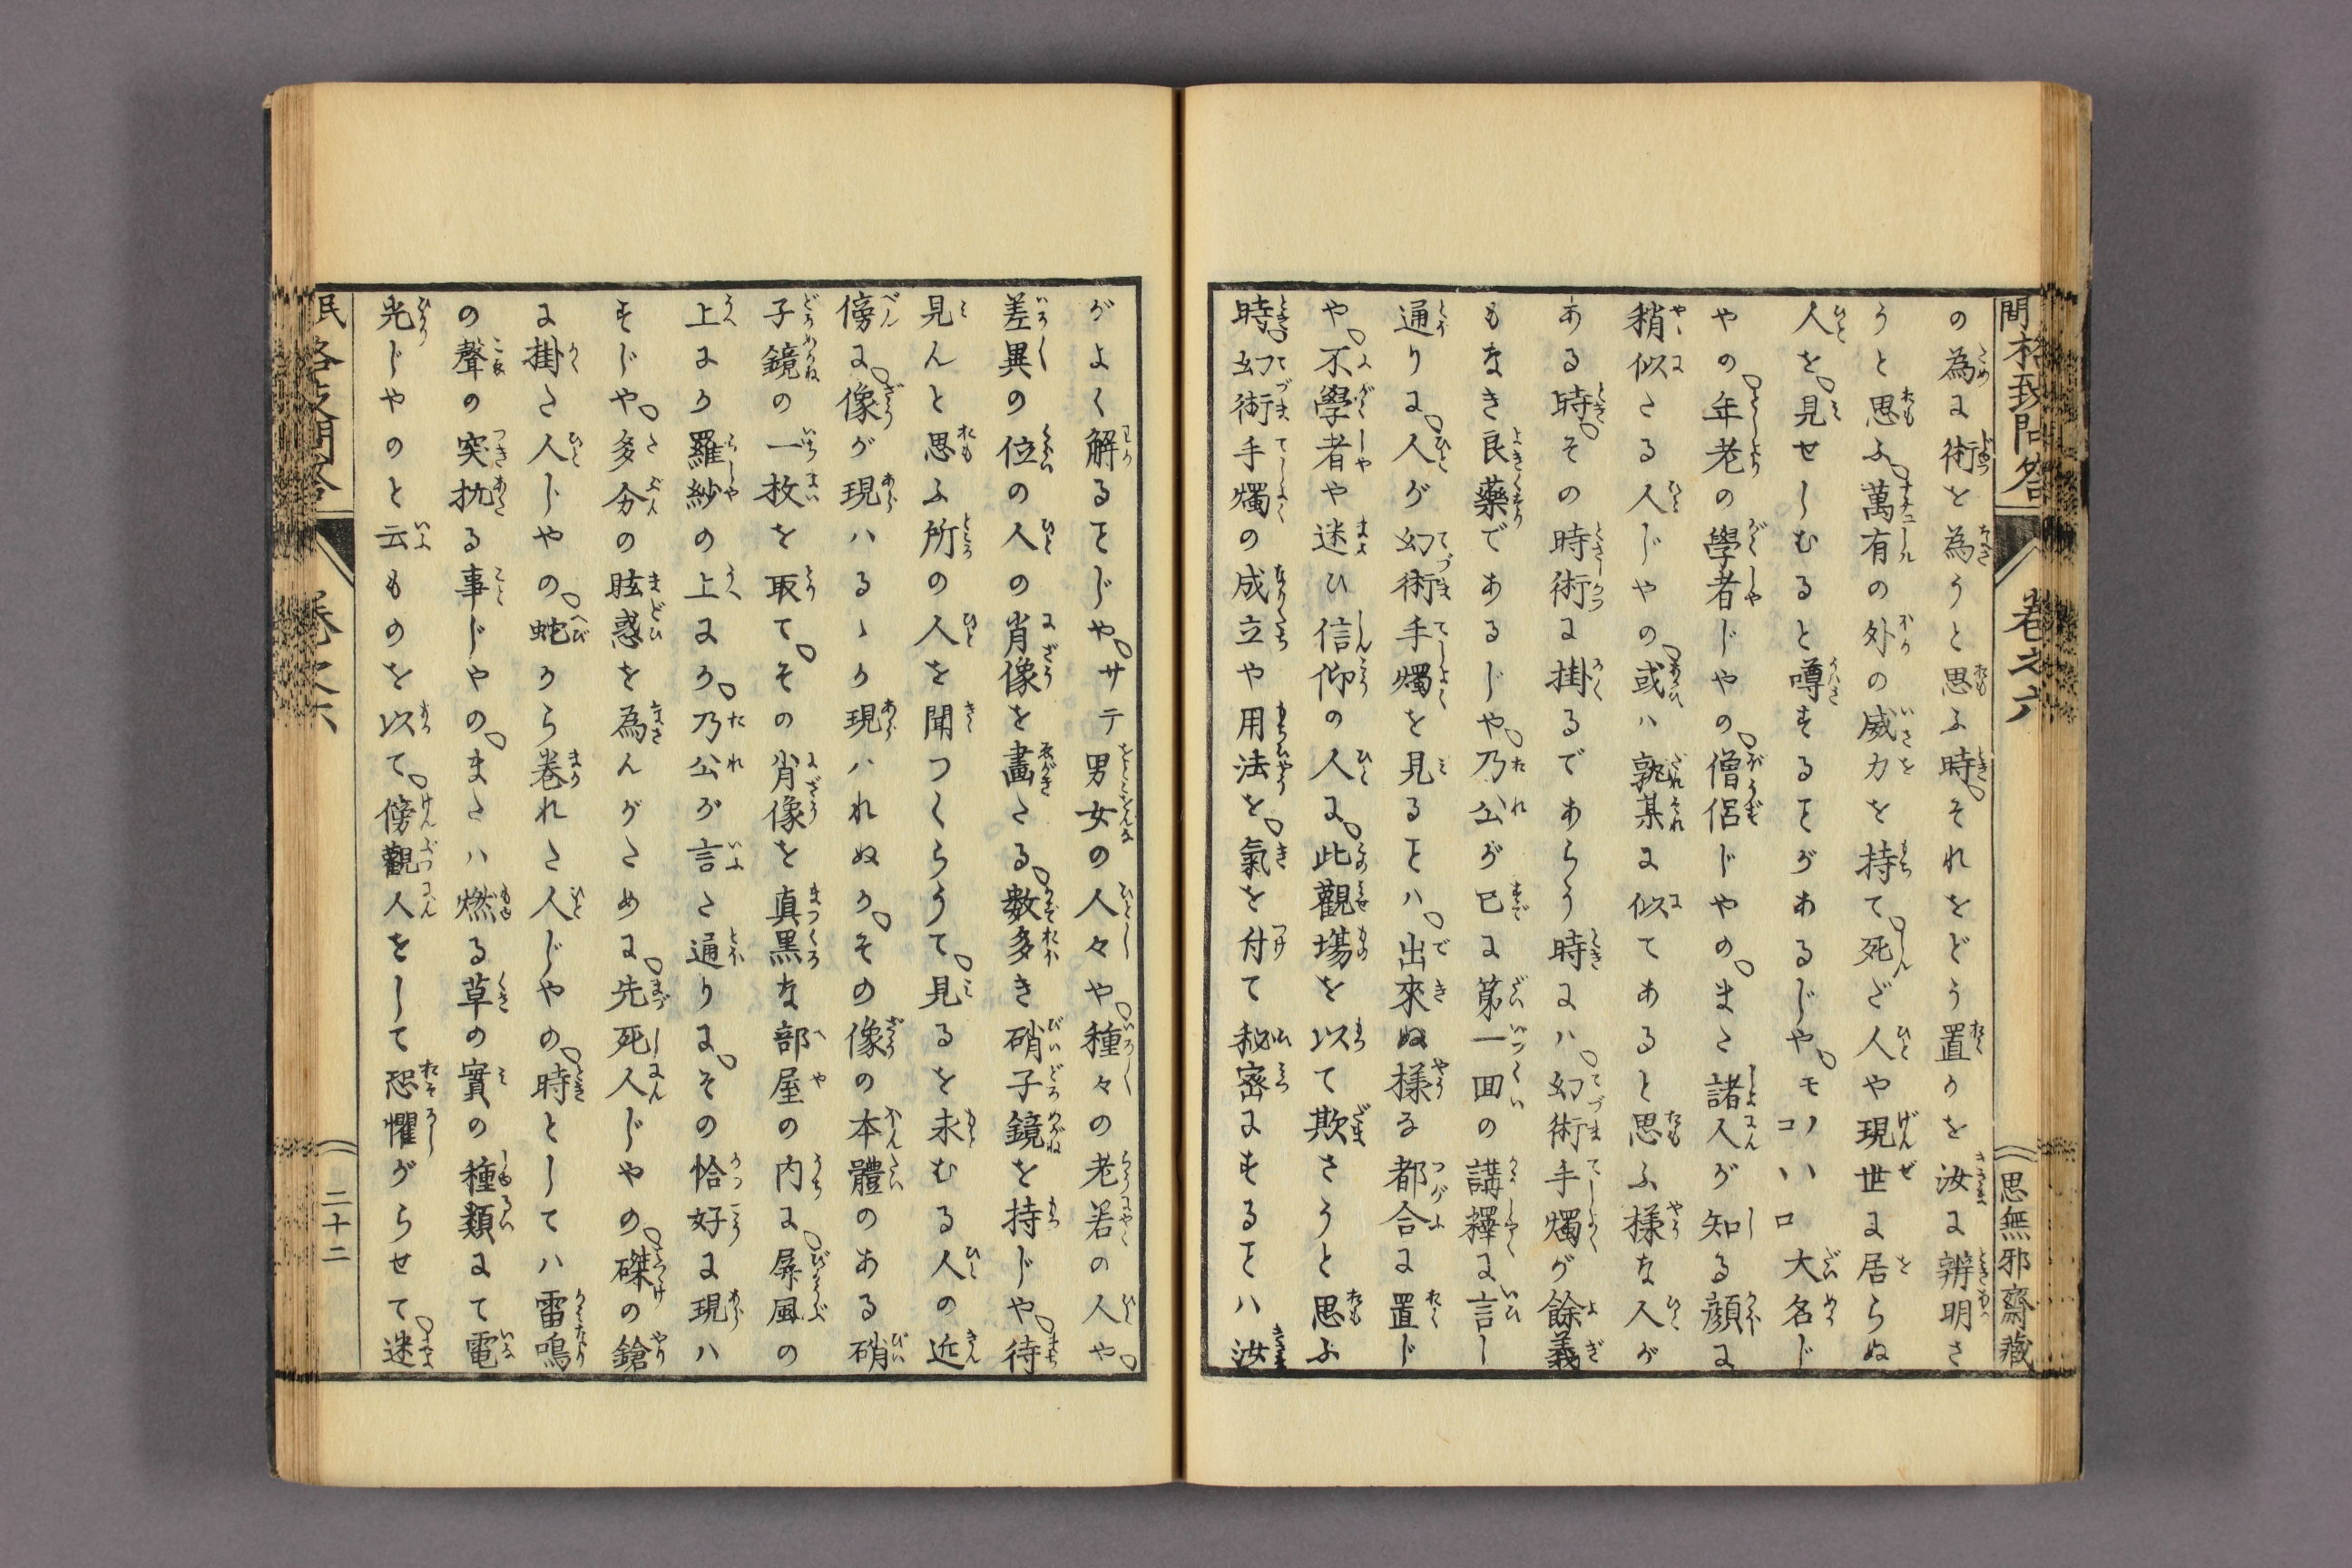 の為に術を為うと思ふ時。それをどう置うを汝に辨明さ
うと思ふ。萬有の外の威力を持て。死だ人や現世に居らぬ
人を。見せしむると噂するヿがあるじや。モノハコヽロ大名じ
やの。年老の學者じやの。僧侶じやの。また諸人が知る顔に
稍似たる人じやの。或ハ孰某に似てあると思ふ様な人が
ある時。その時術に掛るであらう時にハ。幻術手燭が餘義
もなき良藥であるじや。乃公が已に第一囬の講釋に言し
通りに。人が幻術手燭を見るヿハ。出來ぬ様な都合に置じ
や。不學者や迷ひ信仰の人に。此觀場を以て欺さうと思ふ
時。幻術手燭の成立や用法を。氣を付て秘密にするヿハ汝
がよく解るヿじや。サテ男女の人々や。種々の老若の人や。
差異の位の人の肖像を畫たる。數多き硝子鏡を持じや。待
見んと思ふ所の人を聞つくらうて。見るを求むる人の近
傍に。像が現ハるゝか現ハれぬか。その像の本體のある硝
子鏡の一枚を取て。その肖像を真黒な部屋の内に。屏風の
上にか羅紗の上にか。乃公が言た通りに。その恰好に現ハ
すじや。多分の眩惑を為んがために。先死人じやの。磔の鎗
に掛た人じやの。蛇から卷れた人じやの。時としてハ雷鳴
の聲の突抗る事じやの。またハ燃る草の實の種類にて電
光じやのと云ものを以て。傍觀人をして恐懼がらせて。迷
卷之六
思無邪齋藏
二十二